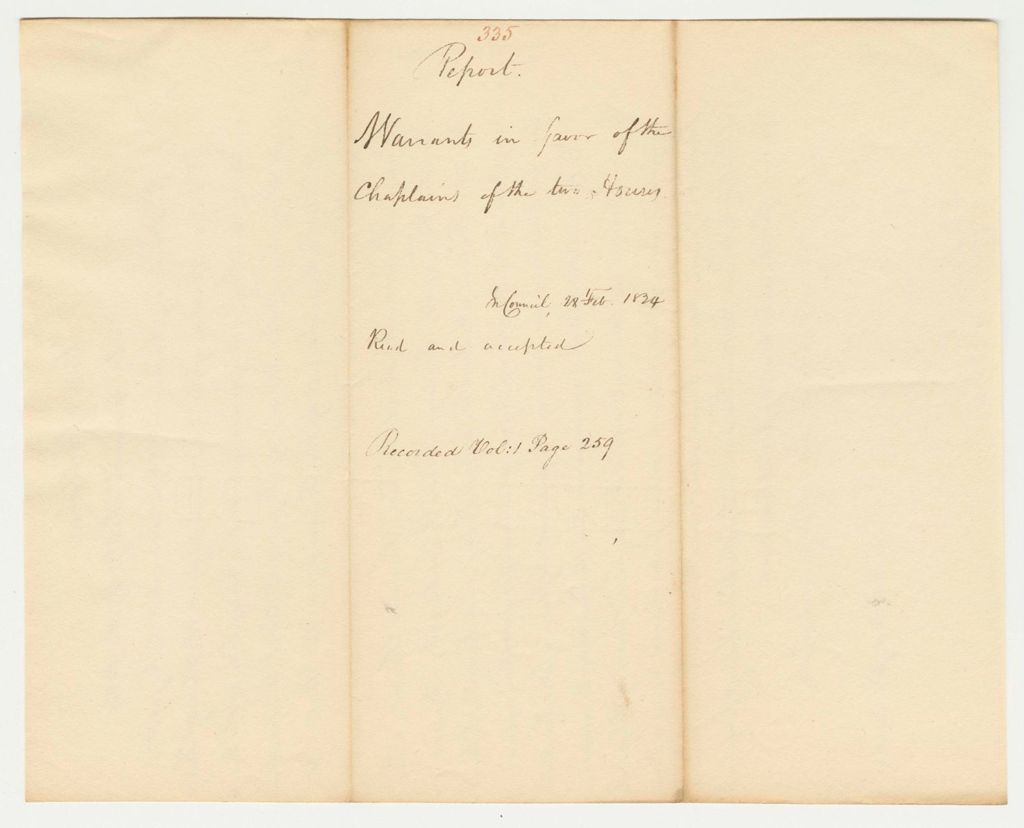 335
Report.
Warrants in favor of the
Chaplains of the two Houses
In Council, 28 Feb. 1834
Read and accepted
Recorded Vol: 1 Page 259